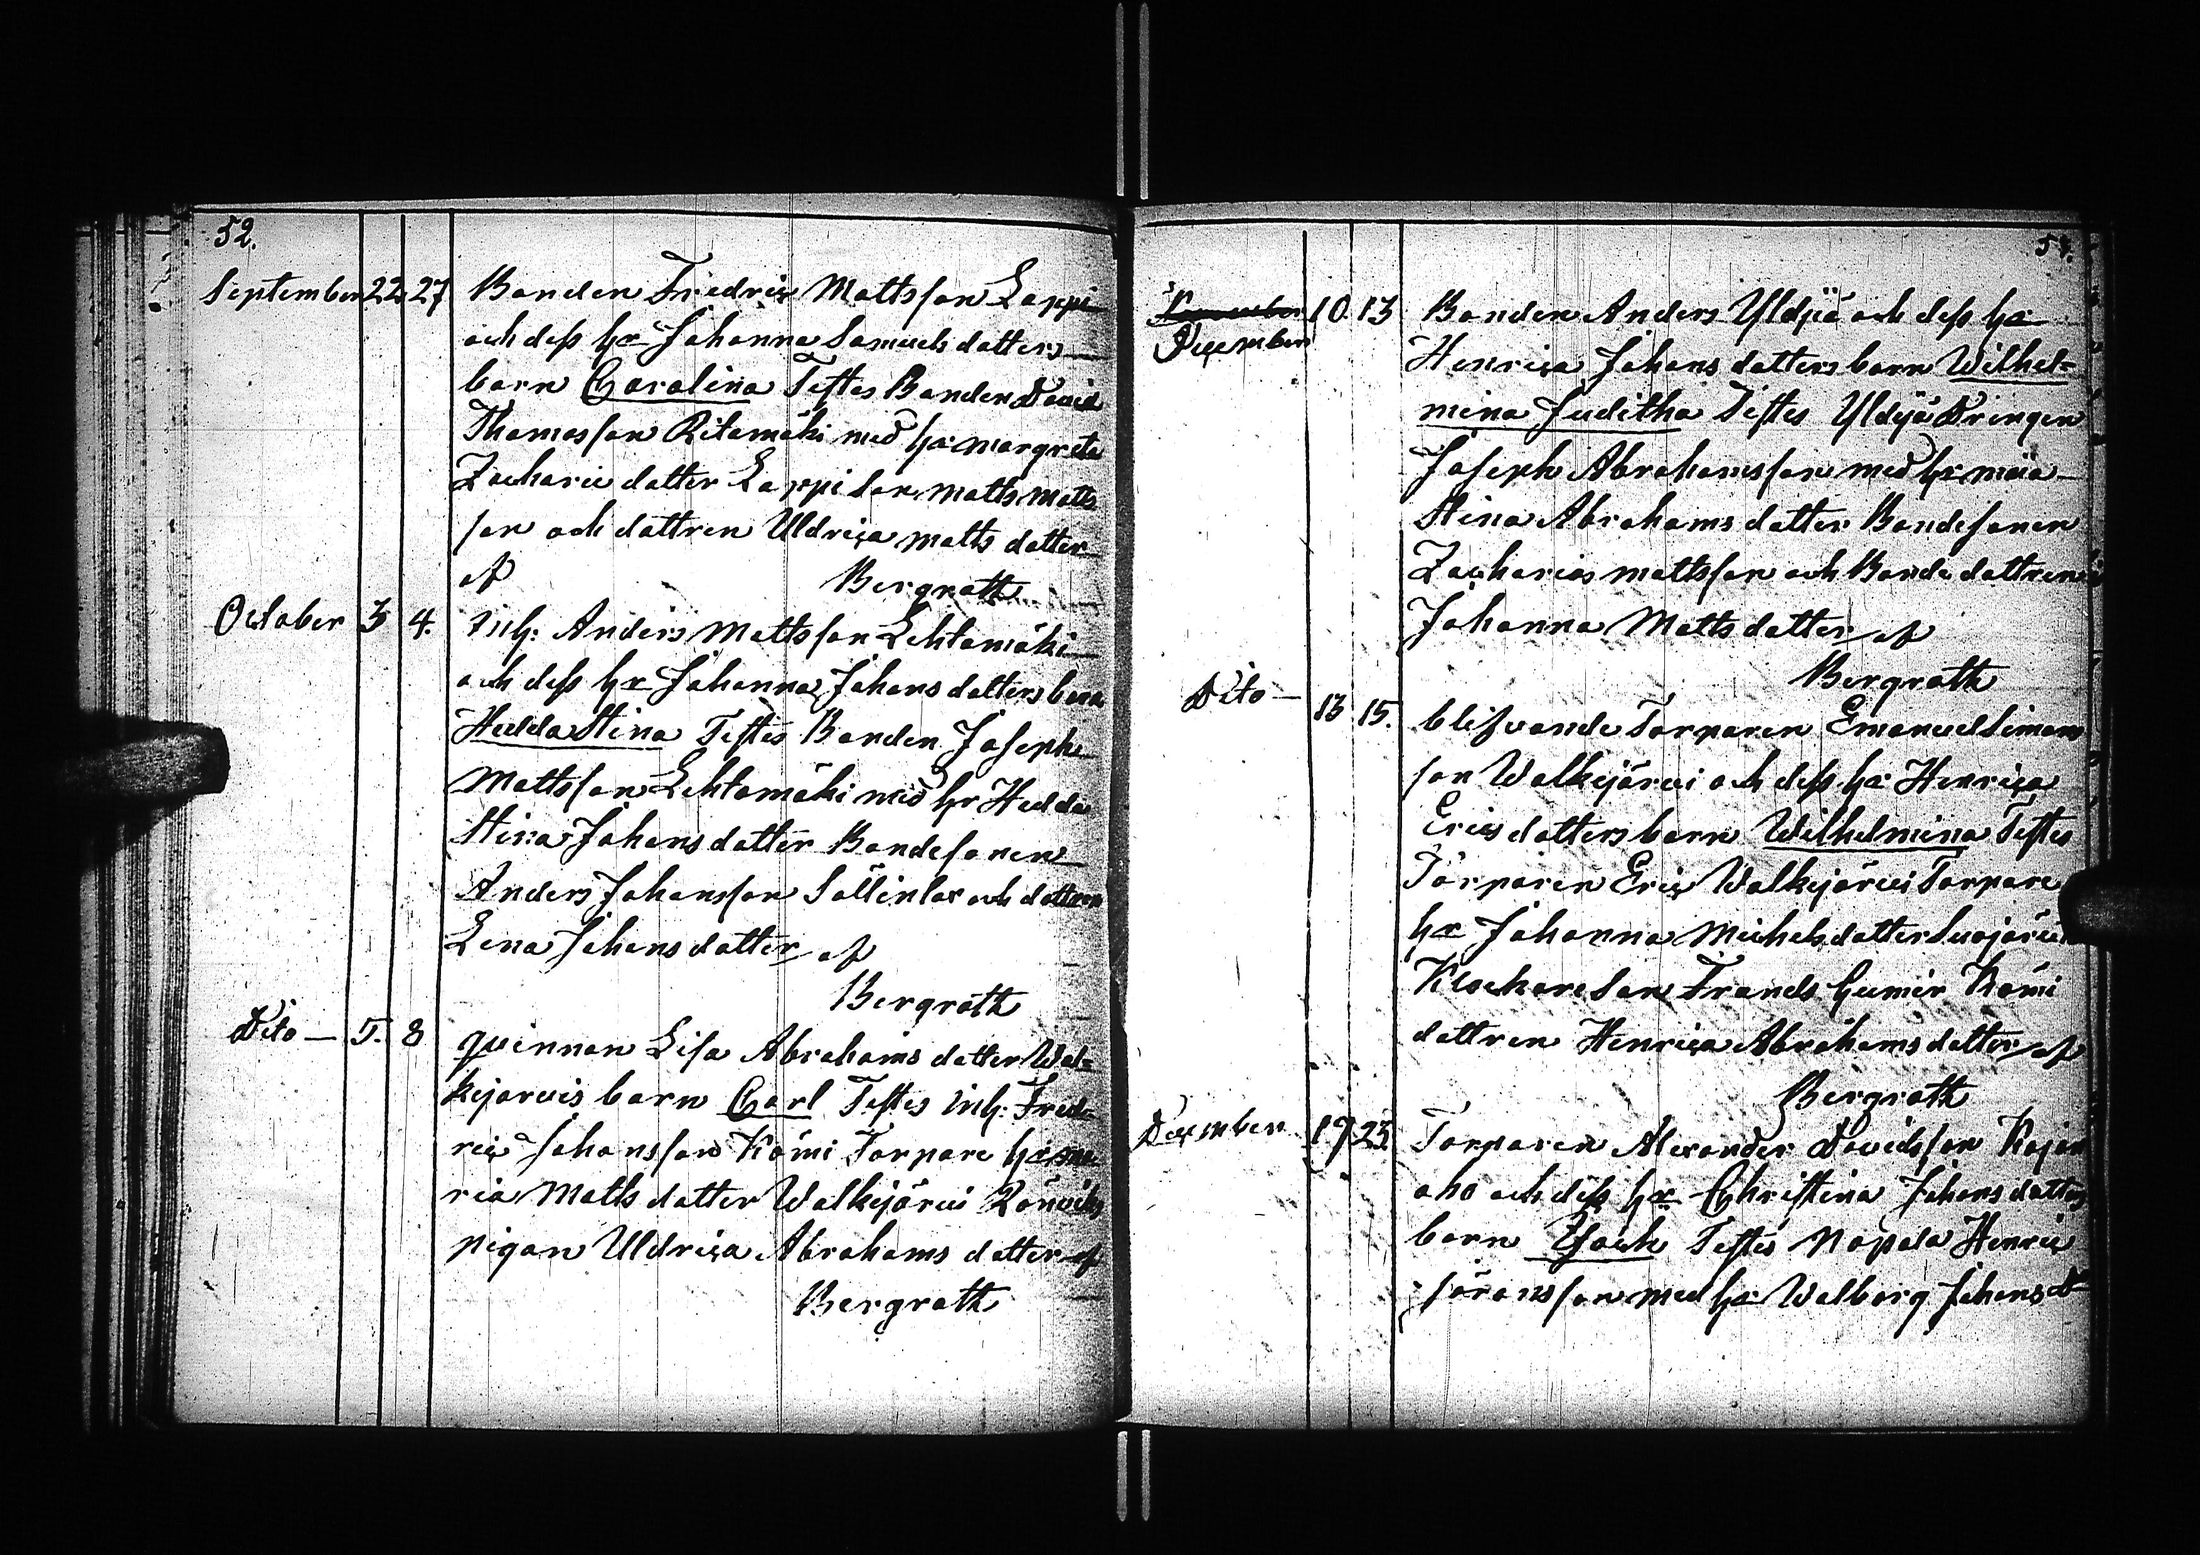 52.
September 22 27 Bonden Fredric Mattsson Lappi
och dess hr Johanna Samuels dotters
barn Carolina Testes Bonden David
Thomasson Ritamäki med hr Margreta
Zacharie dotter Lappi son Matts Matts
son och dottren Uldrica Matts dotter
af Bergroth
October 3 4. Inh: Anders Mattsson Lehtomäki
och dess hr Johanna Johans dotters barn
Hedda Stina Testes Bonden Joseph
Mattsson Lehtomäki med hr Hedda
Stina Johans dotter Bondesonen
Anders Johansson och dottren
Lena Johans dotter af
Bergroth
Dito — 5. 8 qvinnan Lisa Abrahams dotter Wal=
kejärvis barn Carl Testes Inh: Fred=
ric Johansson Kömi Torpare hr Ma
ria Matts dotter Walkejärvi
pigan Uldrica Abrahams dotter af
Bergroth
54.
November 10. 13 Bonden Anders Yldyiä och dess hr
December
Henrica Johans dotters barn Wilhel=
mina Juditha Testes Yldyiä Drängen
Joseph Abrahamsson med hr Maia
Stina Abrahams dotter Bondesonen
Zacharias Mattsson och Bonde dottren
Johanna Matts dotter af
Bergroth
Dito — 13 15. blifvande Torparen Emanuel Simons
son Walkejärvi och dess hr Henrica
Erics dotters barn Wilhelmina Testes
Torparen Eric Walkejärvi Torpare
hr Johanna Michels dotter Suojärvi
Klockare Son Frands Kömi
dottren Henrica Abrahams dotter af
Bergroth
December 19 23 Torparen Alexander Davidsson Kojan
aho och dess hr Christina Johans dotters
barn Isack Testes Nopala Henric
Göransson med hr Walborg Johans dr